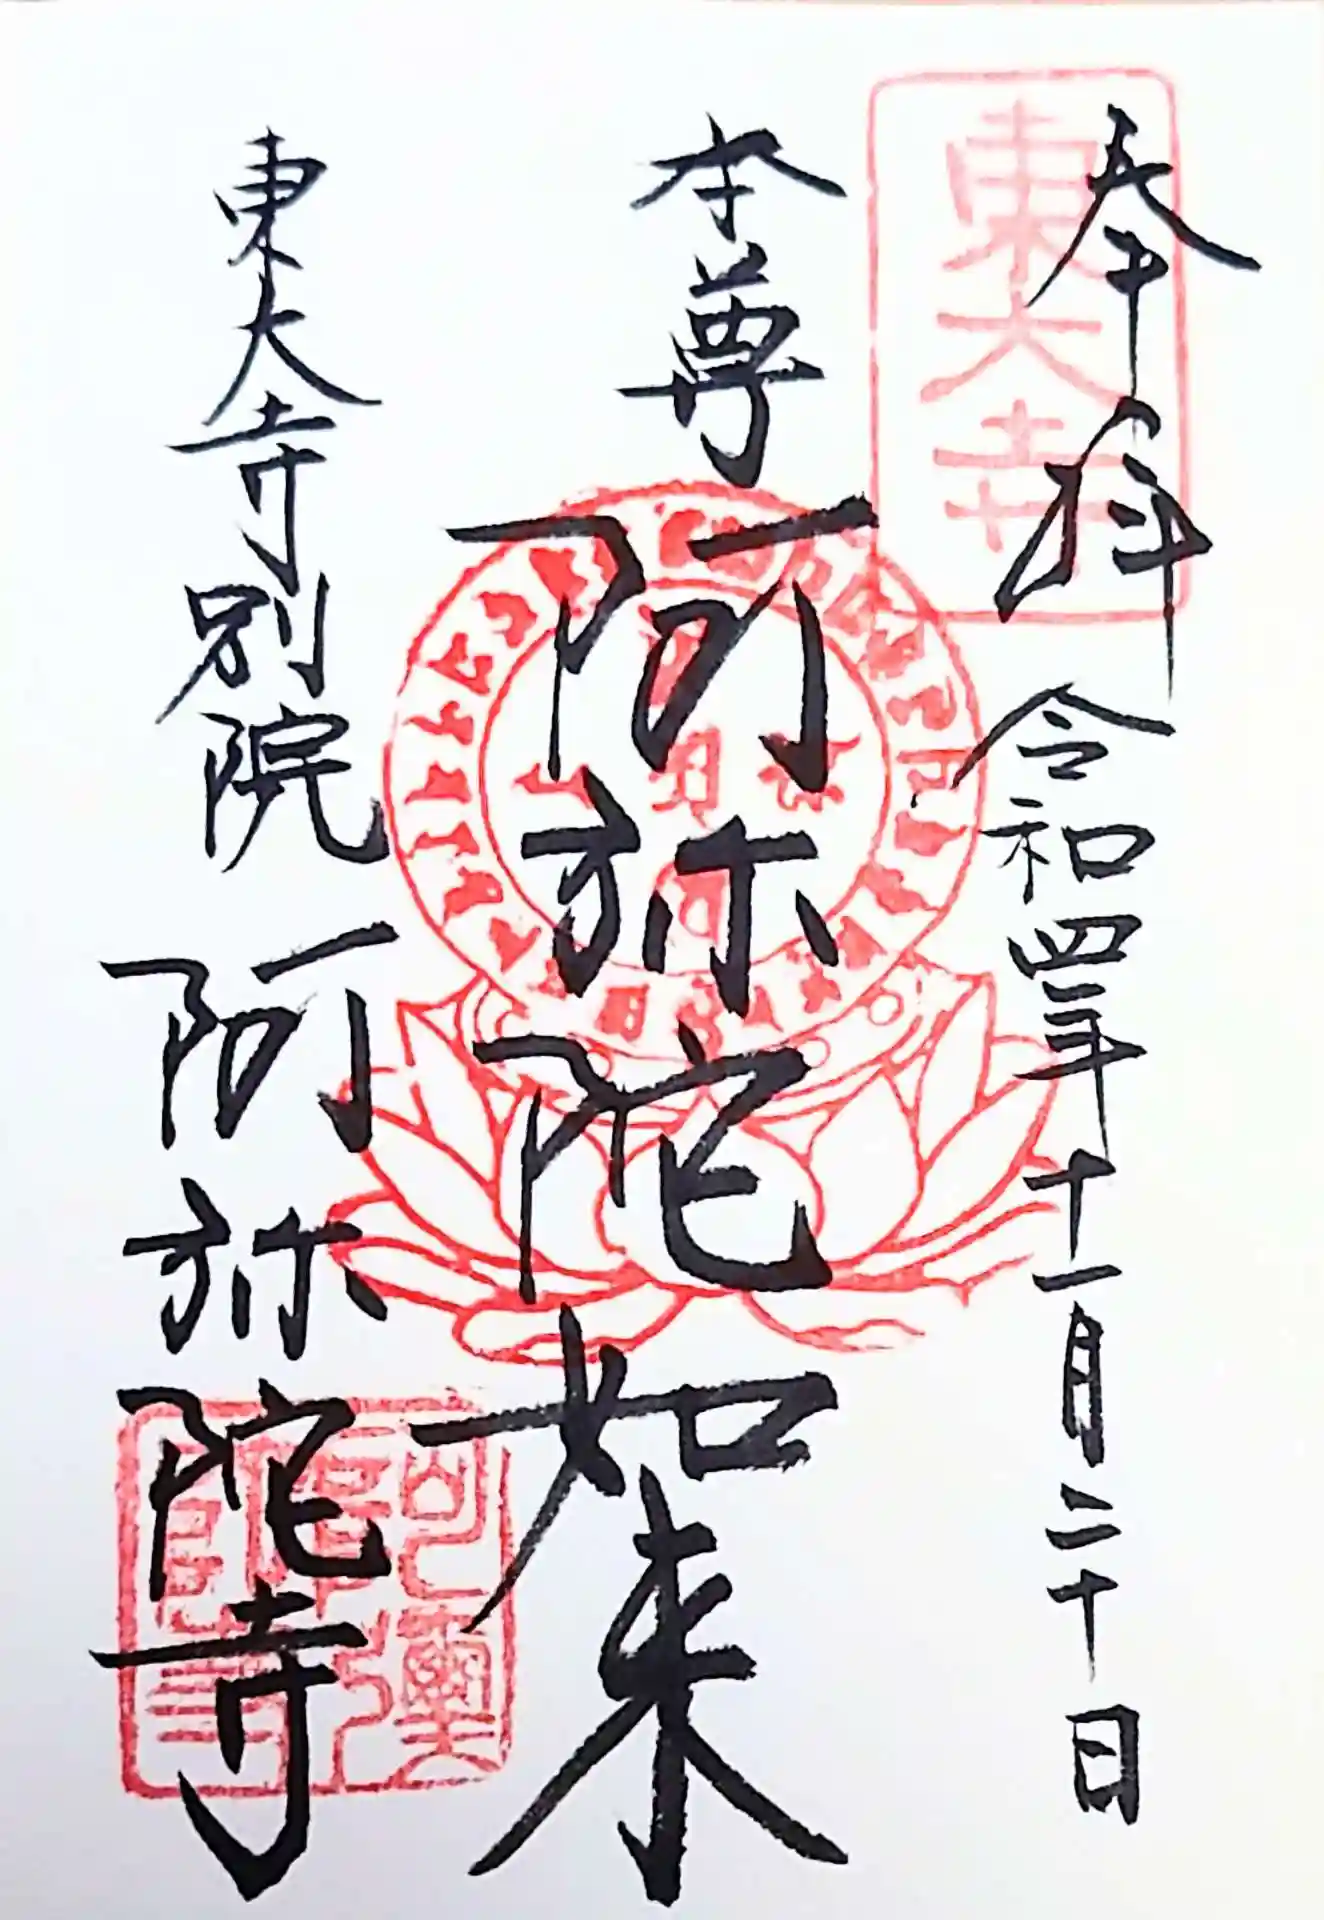 奉拝 令和四年十一月二十日
東大寺
本尊 阿弥陀如来
東大寺別院 阿弥陀寺